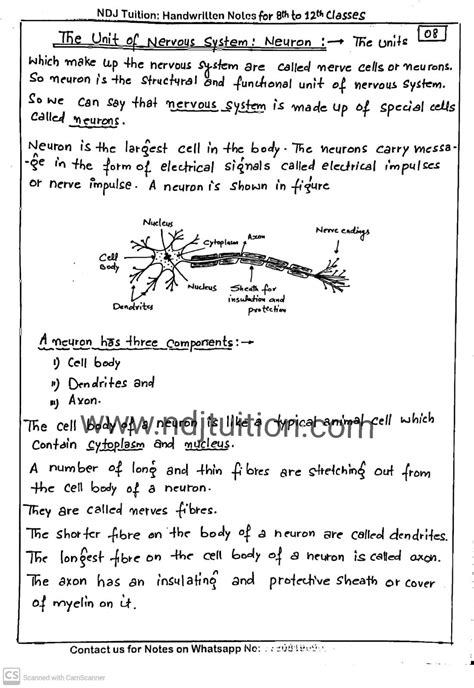 NDJ Tuition: Handwritten Notes for 8th to 12th Classes
08
The Unit of Nervous System: Neuron :→ The units
which make up the nervous system are called nerve cells or neurons.
So neuron is the structural and functional unit of nervous system.
So we can say that nervous system is made up of special cells
called neurons.
Neuron is the largest cell in the body. The neurons carry messa-
-ge in the form of electrical signals called electrical impulses
or nerve impulse. A neuron is shown in figure
Nucleus
Cytoplasm
Axon
Nerve endings
Cell
Body
Dendrites
Nucleus
Sheath for
insulation and
protection
A neuron has three components:→
i) Cell body
ii) Dendrites and
iii) Axon.
The cell body of a neuron is like a typical animal cell which
contain cytoplasm and nucleus.
www.ndjtuition.com
A number of long and thin fibres are stretching out from
the cell body of a neuron.
They are called nerves fibres.
The shorter fibre on the body of a neuron are called dendrites.
The longest fibre on the cell body of a neuron is called axon.
The axon has an insulating and protective sheath or cover
of myelin on it.
Contact us for Notes on Whatsapp No:
CS Scanned with CamScanner